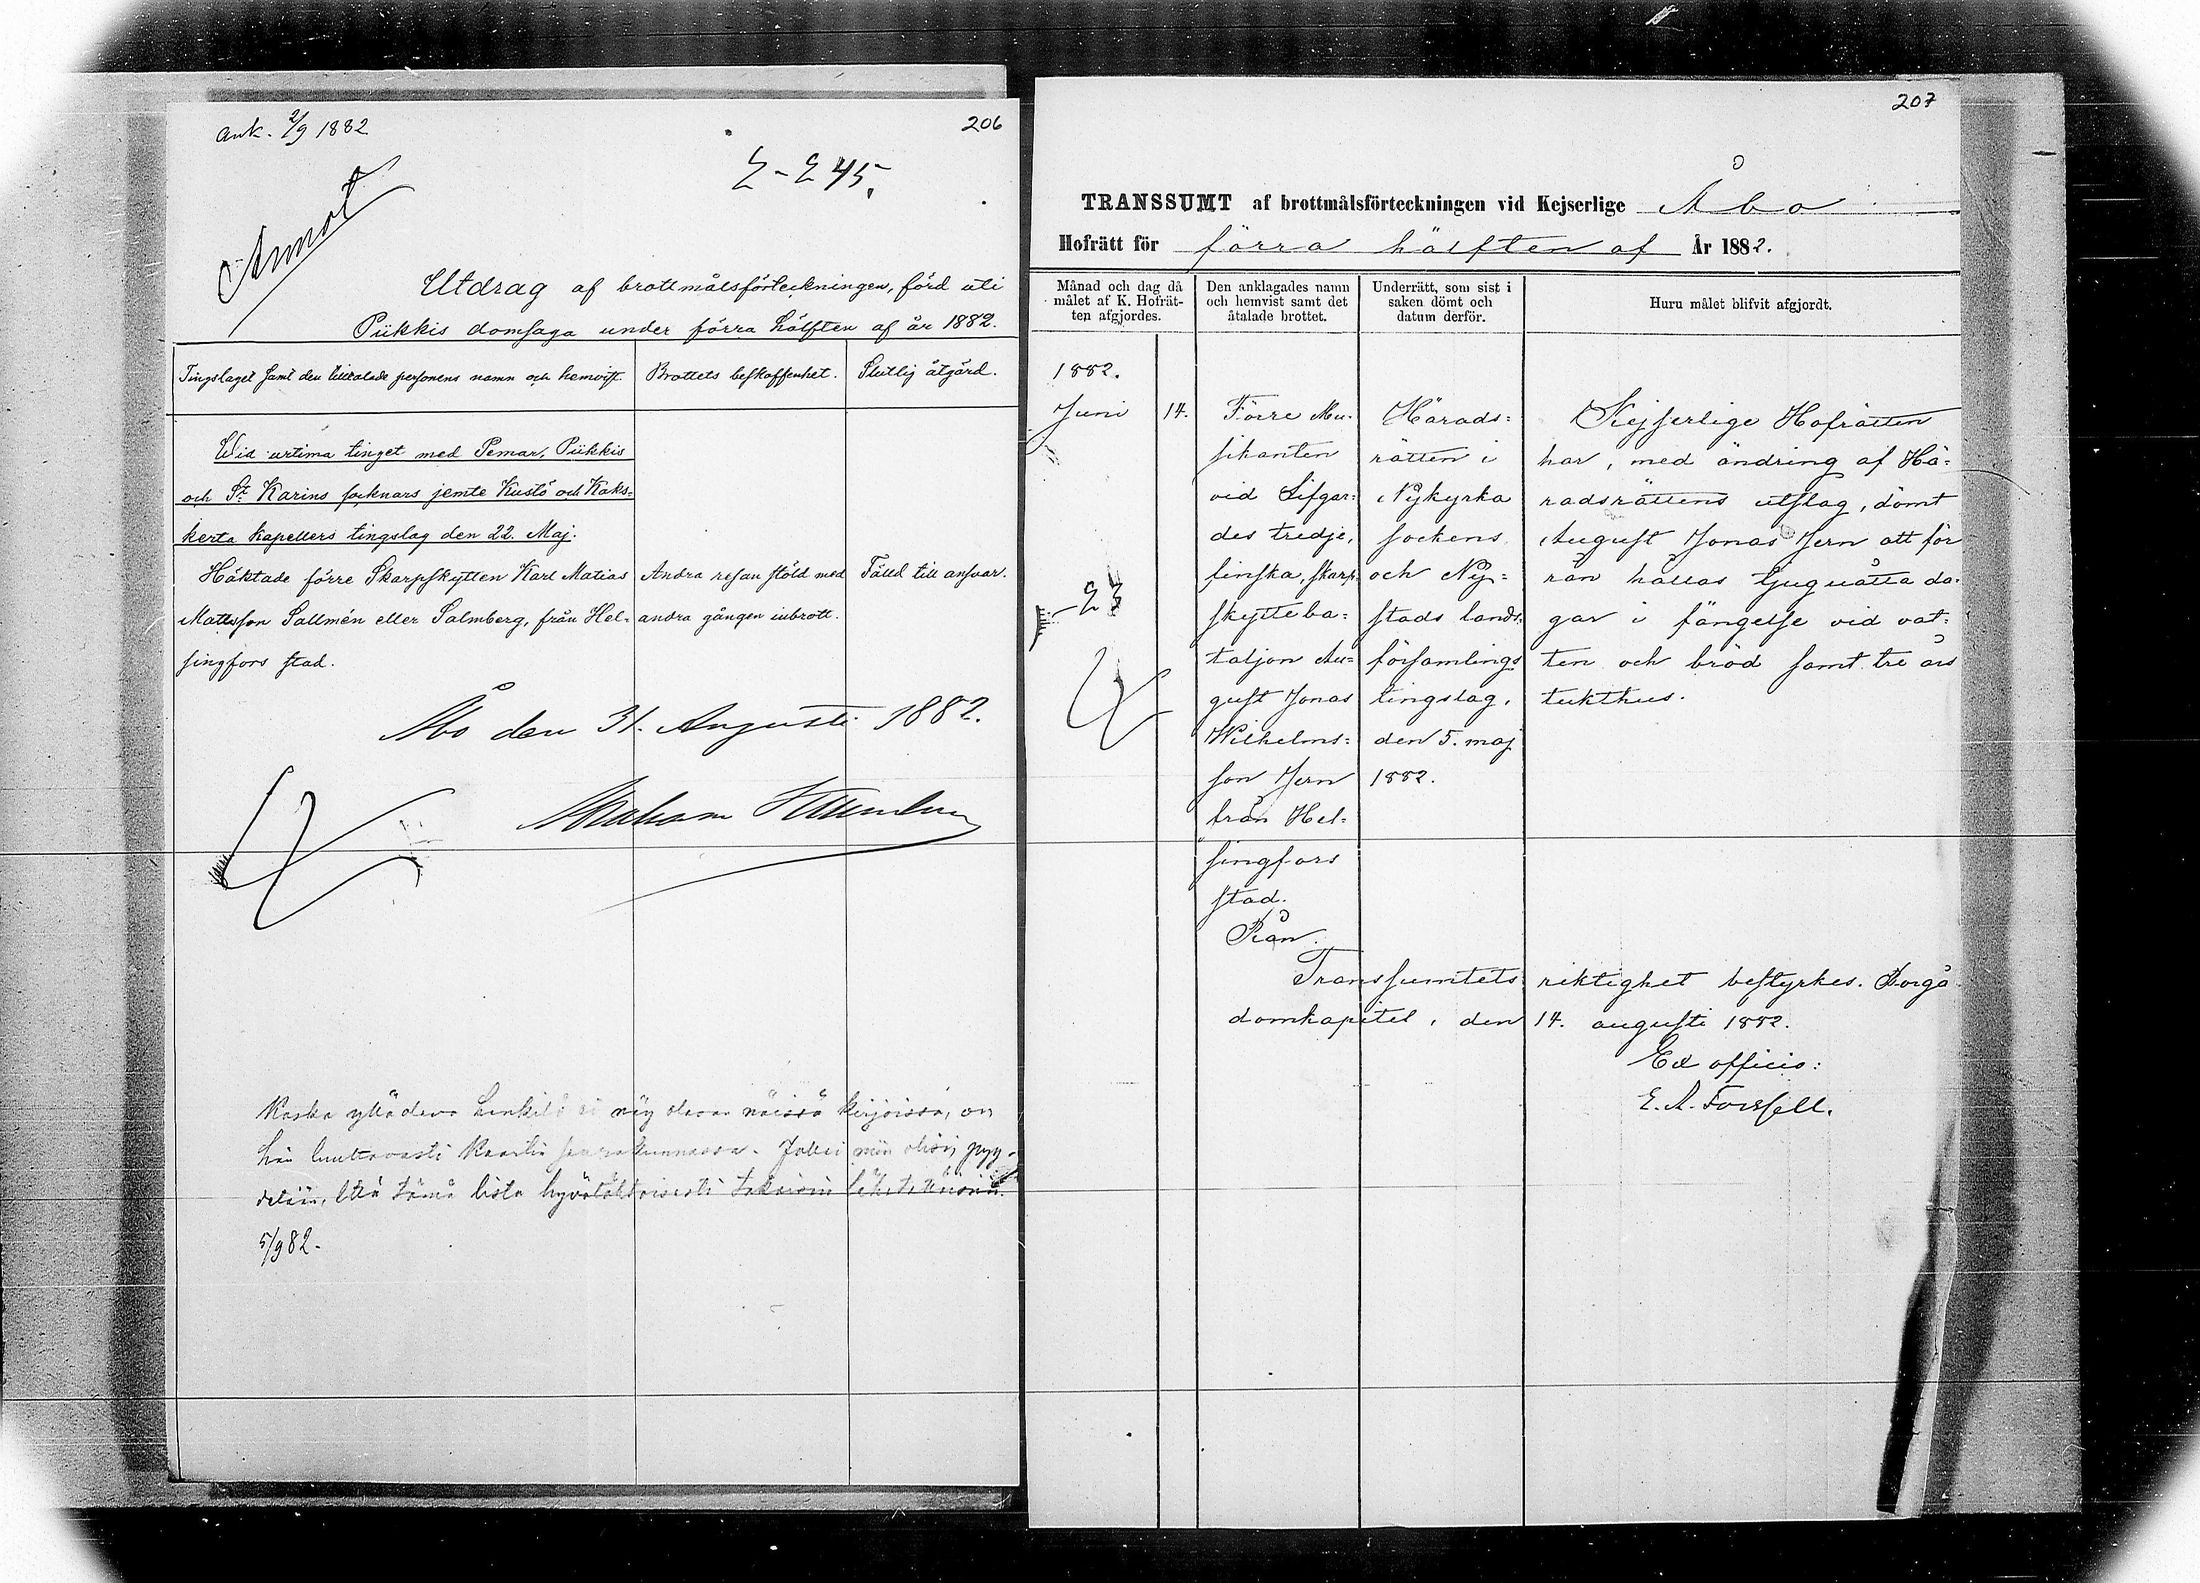 Ank. 2/9 1882
206
Σ-Σ 45.
Annot
Utdrag af brottmålsförteckningen, förd uti
Piikkis domsaga under förra hälften af år 1882.
Tingslaget samt den tilltalade personens namn och hemvist.
Brottets beskaffenhet.
Slutlig åtgärd.
Wid urtima tinget med Pemar, Piikkis
och St. Karins socknars jemte Kustö och Kaks=
kerta kapellers tingslag den 22. Maj.
Häktade förre Skarpskytten Karl Matias
Mattsson Sallmén eller Salmberg, från Hel=
singfors stad.
Andra resan stöld med
andra gången inbrott.
Fälld till ansvar.
Åbo den 31. Augusti 1882.
Koska ylläoleva henkilö ei näy olevan näissä kirjoissa, on
hän luultavasti Kaarlin seurakunnassa. Jollei niin olisi, pyy-
detään, että tämä lista hyväntahtoisesti takaisin lähetettäisiin.
5/9 82.
207
TRANSSUMT af brottmålsförteckningen vid Kejserlige Åbo
Hofrätt för förra hälften af År 1882.
Månad och dag då
målet af K. Hofrät-
ten afgjordes.
Den anklagades namn
och hemvist samt det
åtalade brottet.
Underrätt, som sist i
saken dömt och
datum derför.
Huru målet blifvit afgjordt.
1882.
Juni 14.
Förre Mu-
sikanten
vid Lifgar=
des tredje,
finska, skarp-
skytteba=
taljon Au=
gust Jonas
Wilhelms=
son Jern
från Hel=
singfors
stad.
Rån.
Härads=
rätten i
Nykyrka
sockens
och Ny=
stads lands-
församlings
tingslag,
den 5. maj
1882.
Kejserlige Hofrätten
har, med ändring af Hä=
radsrättens utslag, dömt
August Jonas Jern att för
rån hållas tjuguåtta da-
gar i fängelse vid vat=
ten och bröd samt tre års
tukthus.
Transsumtets riktighet bestyrkes. Borgå
domkapitel, den 14. augusti 1882.
Ex officio:
E. A. Forssell.